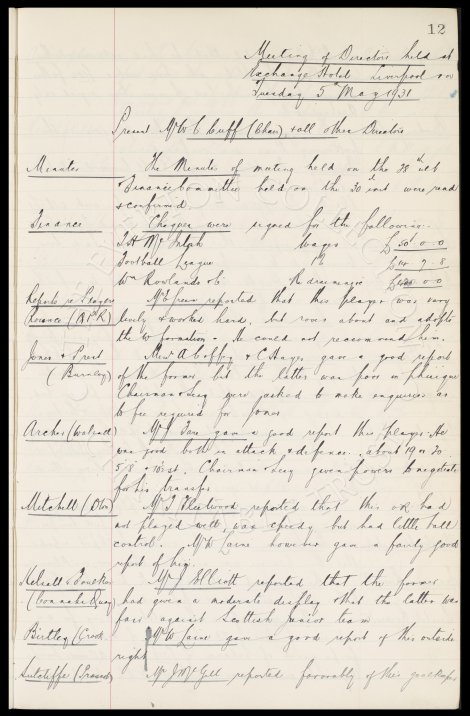 12
Meeting of Directors held at
Exchange Hotel Liverpool on
Tuesday 5th May 1931
Present Mr W C Cuff (Chair) & all other Directors
Minutes The Minutes of meeting held on the 28th ult
& Finance Committee held on the 30th inst were read
& confirmed.
Finance Cheques were signed for the following.
T H McIntosh Wages £50 0 0
Football League £14 7 8
Wm Rowlands & Co. Re drainages 0 0
Reports re Players Mr E Green reported that this player was very
(QPR) lively & worked hard, but roves about and adopts
the W formation & He could not recommend him.
Jones & Prest Messrs A Coffey & C Hayes gave a good report
(Burnley) of the former but the latter was poor in physique
Chairman & Secy were asked to make enquiries as
to fee required for Jones
Archer (Walsall) Mr J Fare gave a good report this player. He
was good both in attack & defence. about 19 or 20.
5/8 & 10 st. Chairman & Secy given powers to negotiate
for his transfer
Mitchell (Oln) Mr T Fleetwood reported that this OR had
not played well, was speedy but had little ball
control. Mr W Laine however gave a fairly good
report of him.
Mr J Elliott reported that the former
(Connahs Quay) had given a moderate display & that the latter was
fair against Scottish junior team
Birtley (Crook Mr W Laine gave a good report of this outside
right
Sutcliffe Mr J McGill reported favorably of this goalkeeper